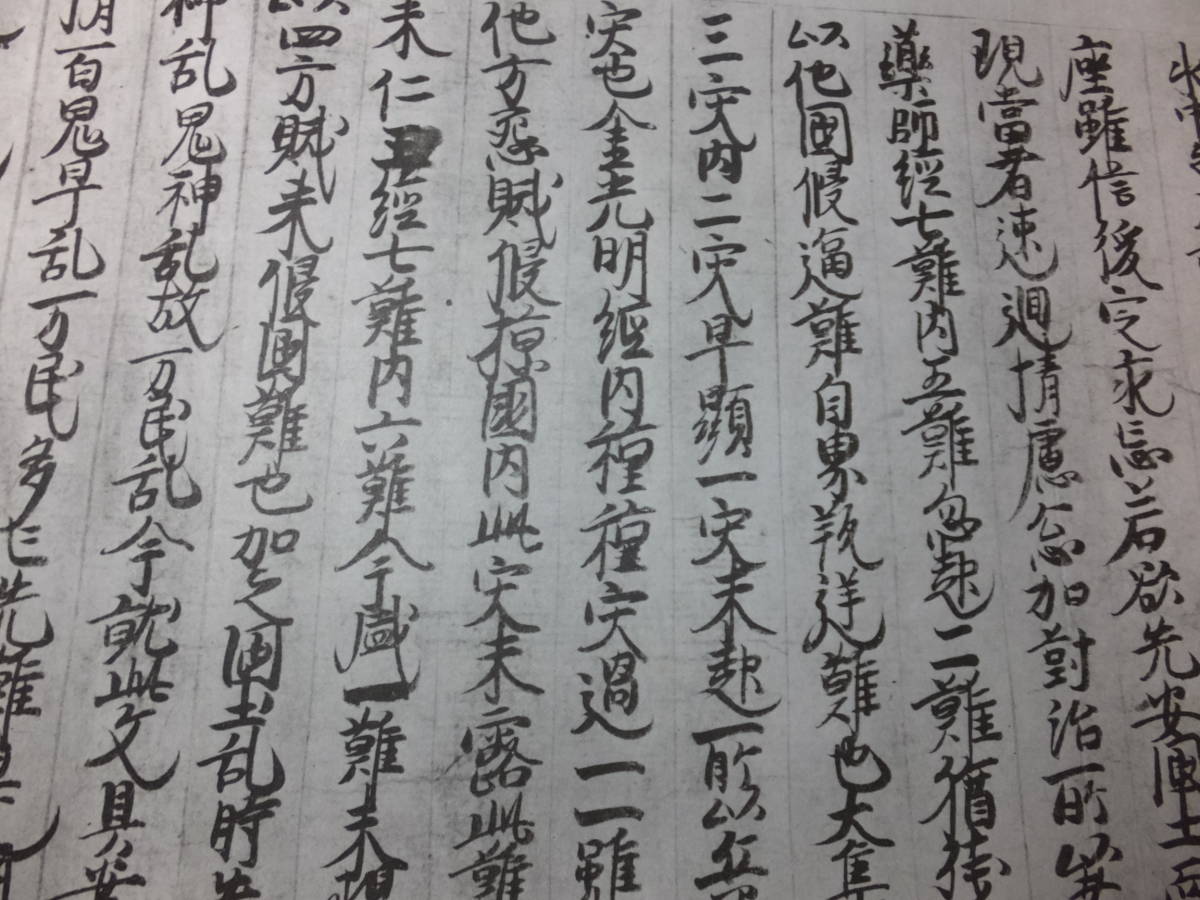 座雖信後定求忘若欲先安国土而
現當者速廻情慮怱加對治所以
藥師經七難内五難忽起二難猶残
以他國侵逼難自界叛逆難也大集
三灾内二灾早顯一灾未起所以兵
灾也金光明經内種種灾過一一雖
他方怨賊侵掠國内此灾未露此難
未仁王經七難内六難今盛一難未現
以四方賊来侵国難也加之国土乱時先
神乱鬼神乱故万民乱今就此文具案
百鬼早乱万民多亡先難是